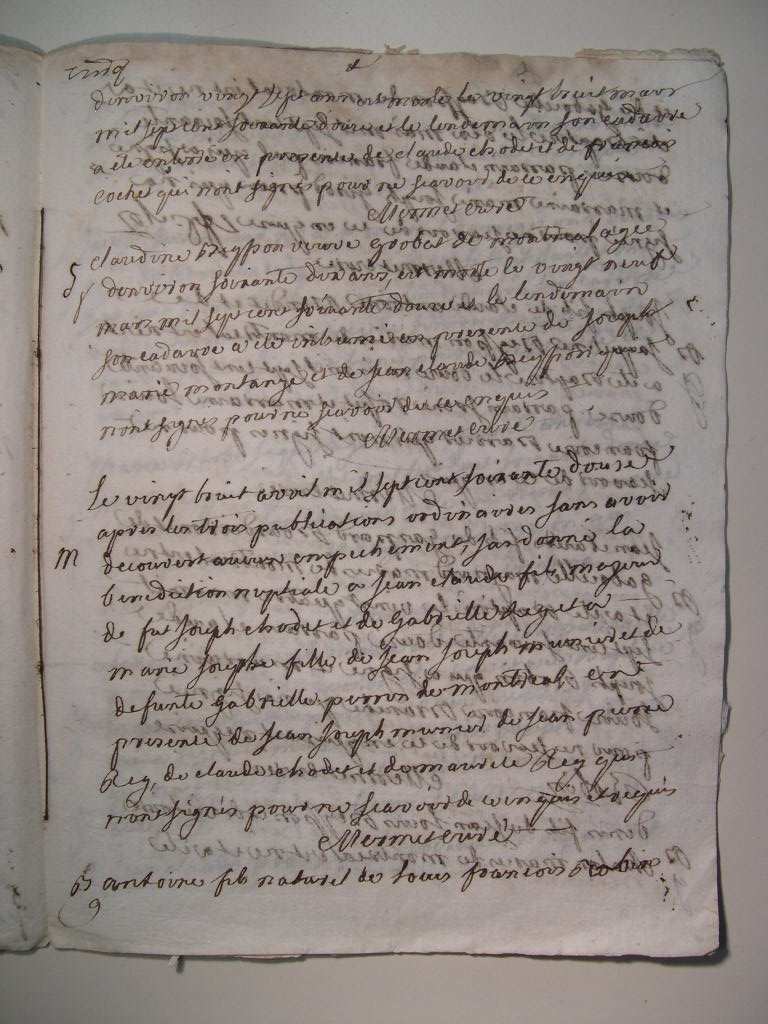 cinq
d'environ vingt sept ans est morte le vingt huit mars
mil sept cent soixante douze et le lendemain son cadavre
a été enterré en presence de claude chodet et de francois
cochet qui n'ont signé pour ne scavoir de ce enquis
Mermet curé
S claudine Breysson veuve grobet de montreal agee
d'environ soixante dix ans est morte le vingt neuf
mars mil sept cent soixante douze et le lendemain
son cadavre a été inhumé en presence de joseph
marie montange et de jean claude breysson qui
n'ont signé pour ne scavoir de ce enquis
Mermet curé
Le vingt huit avril mil sept cent soixante douse
apres les trois publications ordinaires sans avoir
M decouvert aucun empechement, j'ai donné la
benediction nuptiale a jean claude fils majeur
de fut joseph chodet et de Gabrielle Reget a
marie josephe fille de jean joseph munier et de
defunte Gabrielle perron de montreal en
presence de jean joseph munier de jean pierre
Rey, de claude chodet et de maurice Rey qui
n'ont signés pour ne scavoir de ce enquis et requis
Mermet curé
B antoine fils naturel de louis francois
9